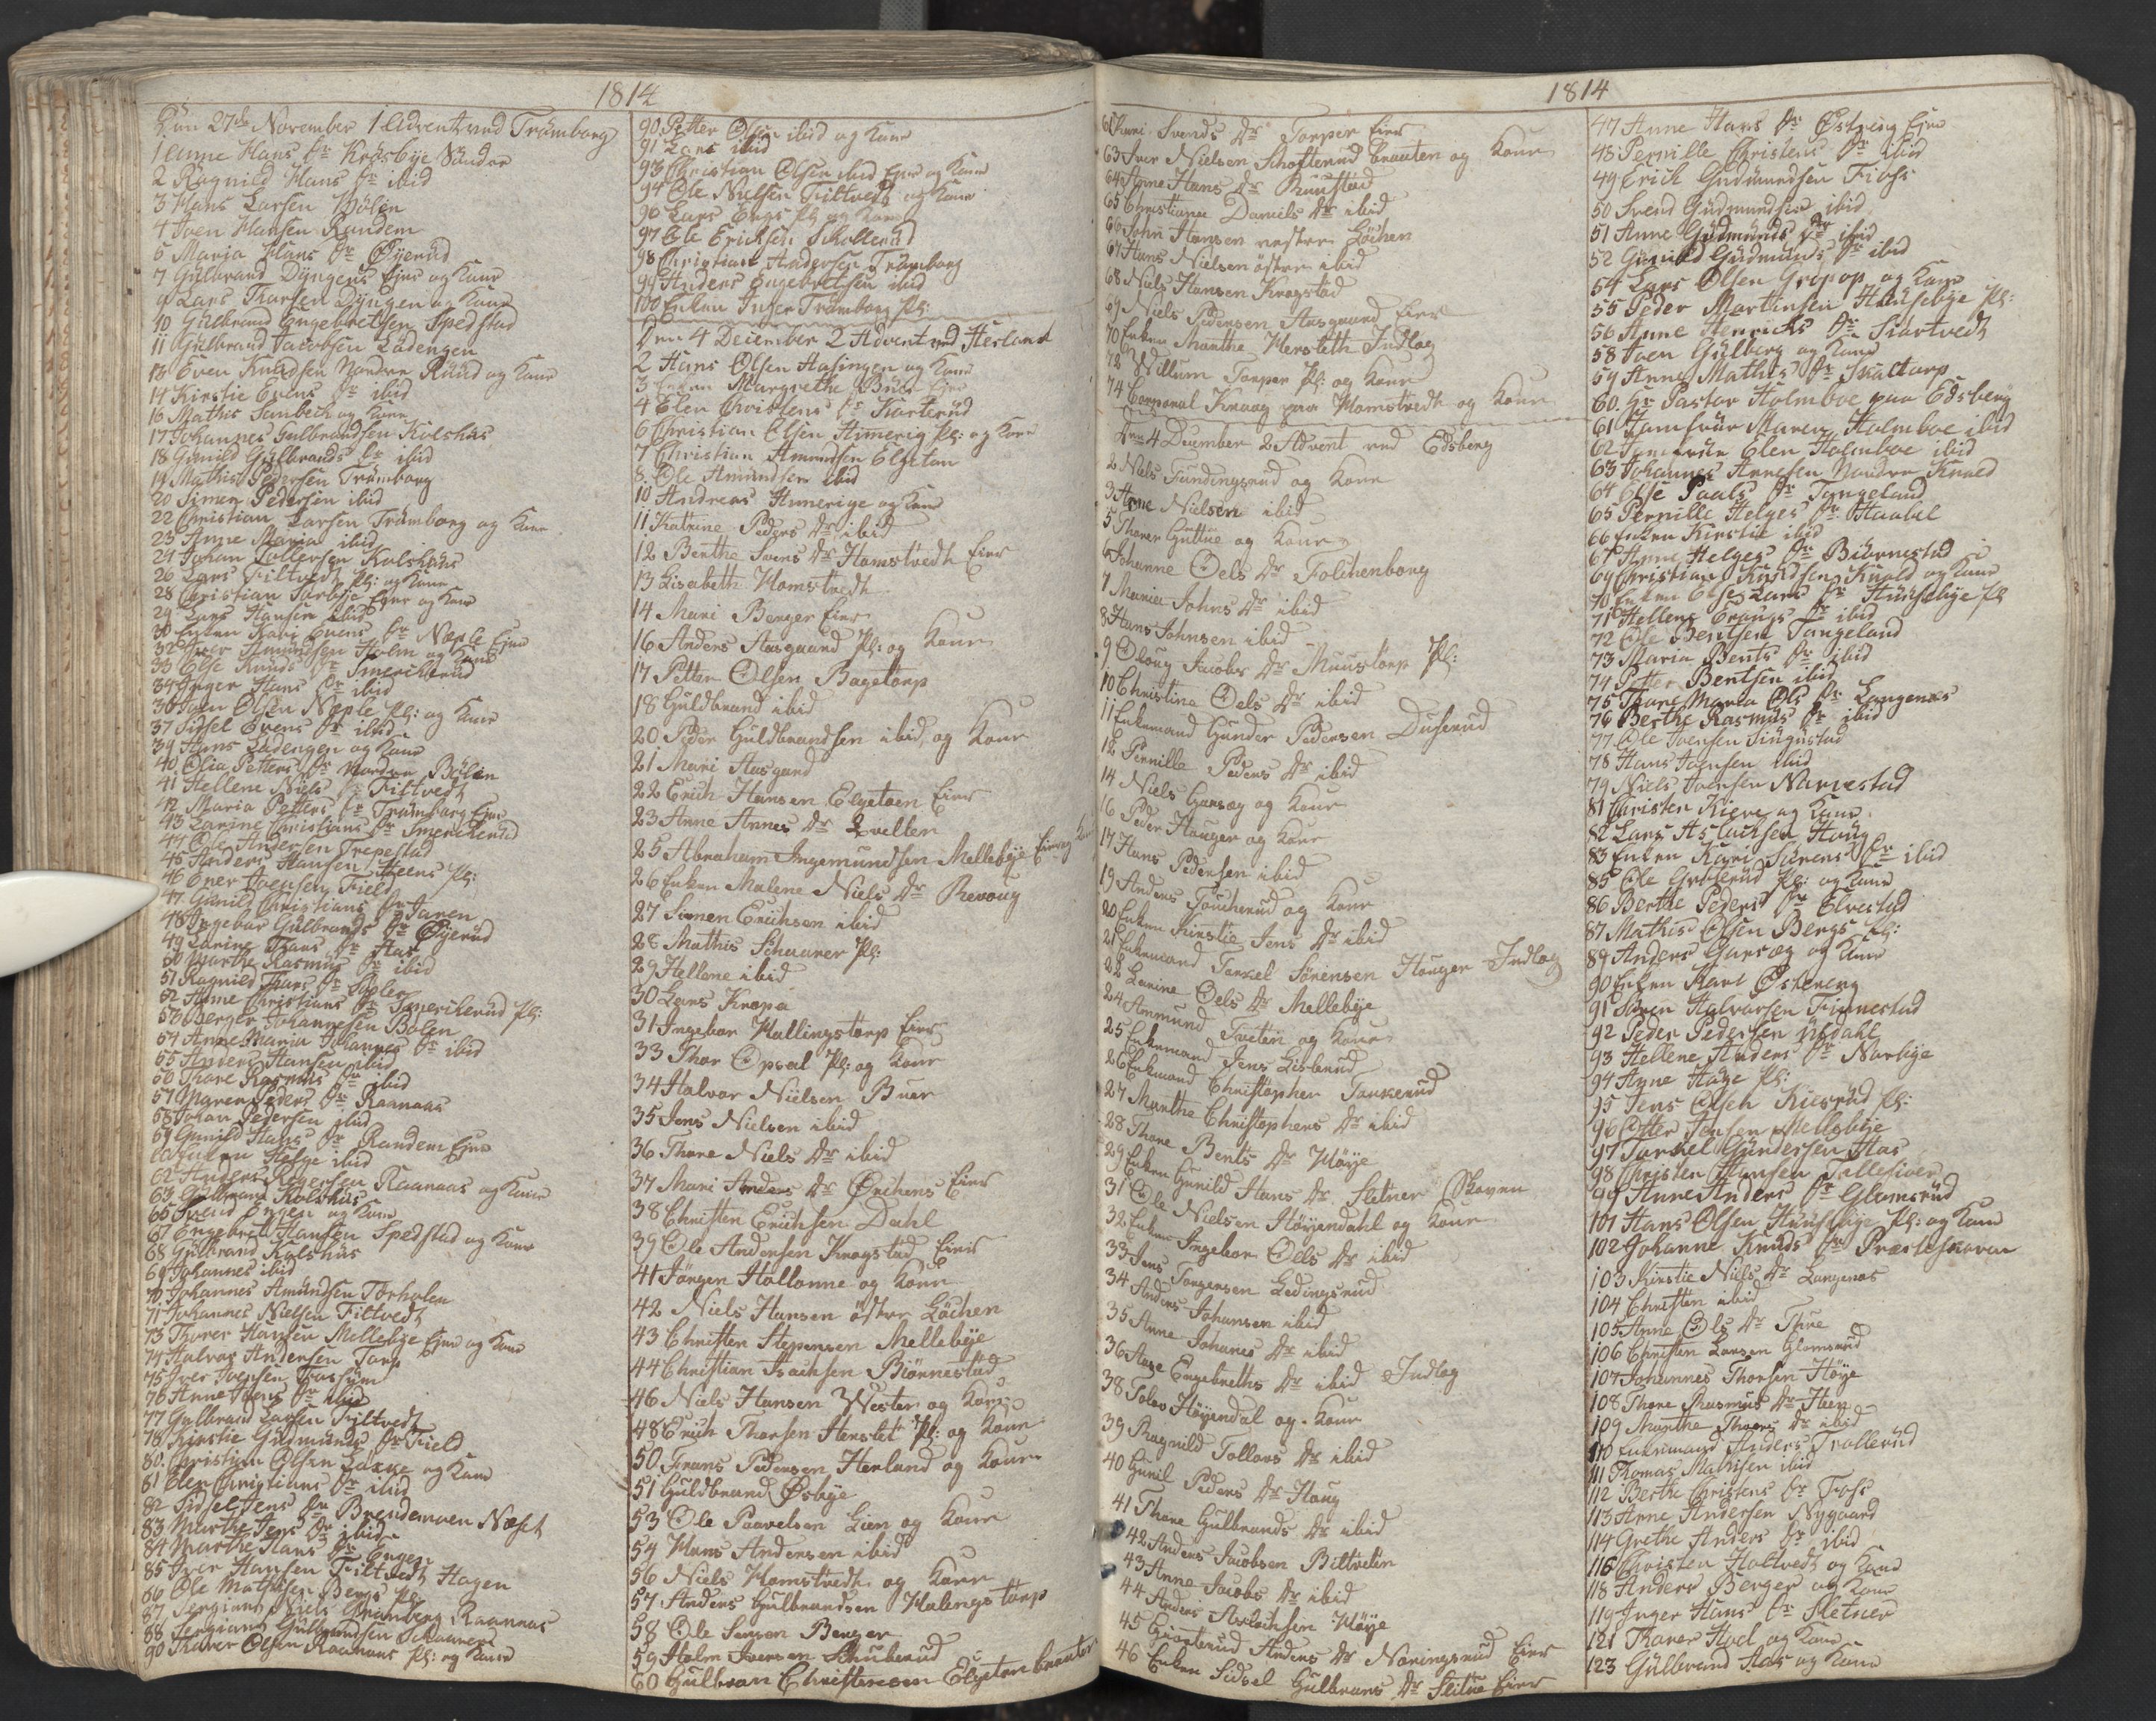 1814
Den 27de November 1 Advent ved Trømborg
1 Anne Hans Dr Kråsbye Søndre
2 Ragnild Hans Dr ibid
3 Hans Larsen Bølen
4 Iven Hansen Randem
5 Maria Hans Dr Øyerud
7 Gulbrand Dyngens Eier og Kone
9 Lars Thorsen Dyngen og Kone
10 Gulbrand Engebretsen Spedstad
11 Gulbrand Jacobsen Ladengen
13 Even Knudsen Nordre Ruud og Kone
14 Kirstie Evens Dr ibid
16 Mathis Sembech og Kone
17 Johannes Gulbrandsen Kolshus
18 Gunild Gulbrands Dr ibid
19 Mathis Pedersen Trømborg
20 Simen Pedersen ibid
22 Christian Larsen Trømborg og Kone
23 Anne Maria ibid
24 Johan Tollefsen Kolshus
26 Lars Filtvedt Pl: og Kone
28 Christian Torbye Eier og Kone
29 Lars Hansen ibid
30 Enken Kari Evens Dr Neple Eier
32 Iver Amundsen Holm og Kone
33 Else Knuds Dr Smerikerud
34 Inger Hans Dr ibid
36 Iven Olsen Neple Pl: og Kone
37 Sissel Evens Dr ibid
39 Hans Ladengen og Kone
40 Olia Petters Dr Nordre Bølen
41 Hellene Niels Dr Filtvedt
42 Maria Petters Dr Trømborg Eier
43 Karine Christians Dr Smerikerud
44 Ole Andersen Trepestad
45 Anders Hansen Heens Pl:
46 Ener Ivensen Field
47 Gunild Christians Dr Jaren
48 Ingebor Gulbrands Dr Øyerud
49 Karine Thors Dr Has
50 Marthe Rasmus Dr ibid
51 Ragnild Thors Dr Bøler
52 Anne Christians Dr Smerikerud Pl:
53 Berger Johannesen Bølen
54 Anne Maria Johannes Dr ibid
55 Anders Hansen ibid
56 Thore Rasmus Dr ibid
57 Maren Peders Dr Raanaas
58 Johan Pedersen ibid
59 Gunild Hans Dr Randem Eier
60 Enken Helge ibid
62 Anders Rogersen Raanaas og Kone
63 Gulbrand Kolshus
65 Svend Engen og Kone
67 Engebret Hansen Spedstad og Kone
68 Gulbrand Kolshus
69 Johannes ibid
70 Johannes Amundsen Torholen
71 Johannes Nielsen Filtvedt
73 Thorer Hansen Mellebye Eier og Kone
74 Halvor Andersen Torp
75 Iver Ivensen Fossum
76 Anne Ivers Dr ibid
77 Gulbrand Larsen Filtvedt
78 Kirstie Gudmunds Dr Field
80 Christian Olsen Lakke og Kone
81 Elen Christians Dr ibid
82 Sidsel Jens Dr Brendemoen Næset
83 Marthe Jens Dr ibid
84 Marthe Hans Dr Engen
85 Iver Hansen Filtvedt Hagen
86 Ole Mathisen Bergs Pl:
87 Sergiant Niels Grønberg Raannaas
88 Sergiant Gulbrandsen Schaaner
90 Thorer Olsen Raanaas Pl: og Kone
90 Petter Olsen ibid og Kone
91 Lars ibid
93 Christian Olsen ibid Eier og Kone
94 Ole Nielsen Filtvedt og Kone
96 Lars Engs Pl: og Kone
97 Ole Erichsen Skollerud
98 Christian Andersen Trømborg
99 Anders Engebretsen ibid
100 Enken Inger Trømborg Pl:
Den 4 December 2 Advent ved Herland
2 Hans Olsen Hasingen og Kone
3 Enken Margrethe Buer Eier
4 Elen Christens Dr Karterud
6 Christian Olsen Himerig Pl: og Kone
7 Christian Amundsen Elgeton
8 Ole Amundsen ibid
10 Andreas Himerige og Kone
11 Katrine Peders Dr ibid
12 Berthe Svens Dr Hamstvedt Eier
13 Lisabeth Homstvedt
14 Mari Berger Eier
16 Anders Aasgaard Pl: og Kone
17 Petter Olsen Bagetorp
18 Guldbrand ibid
20 Peder Guldbrandsen ibid og Kone
21 Mari Aasgard
22 Erich Hansen Elgetoen Eier
23 Anne Annes Dr Quellen
25 Abraham Ingemundsen Mellebye Eier og Kone
26 Enken Malene Niels Dr Revoug
27 Simen Erichsen ibid
28 Mathis Schaaner Pl:
29 Hellene ibid
30 Lars Kropa
31 Ingebor Hallingstorp Eier
33 Thor Opsal Pl: og Kone
34 Halvor Nielsen Buer
35 Jens Nielsen ibid
36 Thore Niels Dr ibid
37 Mari Anders Dr Ørchens Eier
38 Christen Erichsen Dahl
39 Ole Andersen Kragstad Eier
41 Jørgen Hollonne og Kone
42 Niels Hansen østre Løchen
43 Christen Stepensen Mellebye
44 Christian Isachsen Biønnestad
46 Niels Hansen Wester og Kone
48 Erich Thorsen Herslet Pl: og Kone
50 Frans Pedersen Herland og Kone
51 Guldbrand Øsbye
53 Ole Paavelsen Lien og Kone
54 Hans Andersen ibid
56 Niels Homstvedt og Kone
57 Anders Gulbrandsen Halengstorp
58 Ole Simson Berger
59 Holm Iversen Skuberud
60 Gulbran Christensen Elgeton brauten
1814
61 Kari Svends Dr Torper Eier
63 Iver Nielsen Schofterud brauten og Kone
64 Anne Hans Dr Ruustad
65 Christiane Daniels Dr ibid
66 John Hansen vestre Løchen
67 Hans Nielsen østre ibid
68 Niels Hansen Kragstad
69 Niels Pedersen Aasgaard Eier
70 Enken Marthe Hersleth Indlog
72 Willum Torper Pl: og Kone
74 Corporal Kraag paa Homstvedt og Kone
Den 4 December 2 Advent ved Edsberg
2 Niels Fundingsrud og Kone
3 Arne Nielsen ibid
5 Thorer Guttue og Kone
6 Johanne Oels Dr Folchenborg
7 Maria Johns Dr ibid
8 Hans Johnsen ibid
9 Oloug Jacobs Dr Muustorp Pl:
10 Christina Oels Dr ibid
11 Enkemand Gunder Pedersen Duserud
12 Pernille Peders Dr ibid
14 Niels Garsøg og Kone
16 Peder Houger og Kone
17 Hans Pedersen ibid
19 Anders Toucherud og Kone
20 Enken Kirstie Jens Dr ibid
21 Enkemand Torkel Sørensen Houger Indlog
22 Karine Oels Dr Mellebye
24 Ammund Tveten og Kone
25 Enkemand Jens Lisbrud
26 Enkemand Christopher Tankerud
27 Marthe Christophers Dr ibid
28 Thore Bents Dr Høye
29 Enken Gunild Hans Dr Sletner Skoven
31 Ole Nielsen Høyendahl og Kone
32 Enken Ingebor Oels Dr ibid
33 Jens Torgersen Ledingsrud
34 Anders Johansen ibid
35 Anne Johanes Dr ibid
36 Aase Engebreths Dr ibid Indlog
38 Tolov Høyendal og Kone
39 Ragnild Tollovs Dr ibid
40 Gunil Peders Dr Haug
41 Thore Gulbrands Dr ibid
42 Anders Jacobsen Biltvetin
43 Anne Jacobs Dr ibid
44 Anders Aslachsen Høye
45 Anders Dr Næringsrud Eier
46 Enken Sidsel Gulbrans Dr Sletne Eier
47 Anne Hans Dr Østreng Eier
48 Pernille Christens Dr ibid
49 Erich Gudmundsen Fioss
50 Svend Gudmundsen ibid
51 Anne Gudmunds Dr ibid
52 Gunild Gudmunds Dr ibid
54 Lars Olsen Gropop og Kone
55 Peder Marthinsen Huusebye Pl:
56 Anne Henrichs Dr Siartvedt
58 Iven Gulberg og Kone
59 Anne Mathis Dr Skaltorp
60 Hr Pastor Holmboe paa Edsberg
61 Jomfrue Maren Holmboe ibid
62 Jomfrue Elen Holmboe ibid
63 Johannes Arnesen Nordre Knold
64 Else Paals Dr Tangeland
65 Pernille Helges Dr Haabel
66 Enken Kirstie ibid
67 Anne Helges Dr Biørnestad
69 Christian Knudsen Knold og Kone
70 Enken Else Lars Dr Huusebye Pl
71 Hellene Dr ibid
72 Ole Bentsen Tangeland
73 Maria Bents Dr ibid
74 Petter Bentsen ibid
75 Thore Maria Ols Dr Langenæs
76 Berthe Rasmus Dr ibid
77 Ole Ivensen Singustad
78 Hans Ivensen ibid
79 Niels Ivensen Narvestad
81 Christen Kiere og Kone
82 Lars Aslachsen Houg
83 Enken Kari Sørens Dr ibid
85 Ole Graterud Pl: og Kone
86 Berthe Peders Dr Elvestad
87 Mathis Olsen Bergs Pl:
89 Anders Garsøg og Kone
90 Enken Kari Østereng
91 Søren Halvorsen Finnestad
92 Peder Pedersen Updahl
93 Hellene Anders Dr Narbye
94 Anne Hage Pl:
95 Jens Olsen Kiesrud Pl:
96 Otter Jensen Mellebye
97 Torkel Gundersen Has
98 Christen Hansen Tallesiver
99 Anne Anders Dr Glomsrud
101 Hans Olsen Huusebye Pl: og Kone
102 Johanne Knuds Dr Presteskoven
103 Kirstie Niels Dr Langenæs
104 Christen ibid
105 Anne Ols Dr Thre
106 Christen Larsen Glomsrud
107 Johannes Thorsen Høye
108 Thore Rasmus Dr Heen
109 Marthe Thoers Dr ibid
110 Enkemand Anders Trollerud
111 Thomas Mathisen ibid
112 Berthe Christens Dr Foss
113 Arne Andersen Nygaard
114 Grethe Anders Dr ibid
116 Christen Holtvedt og Kone
118 Anders Berger og Kone
119 Inger Hans Dr Sletner
121 Thorer Hoel og Kone
123 Gulbrand Aas og Kone